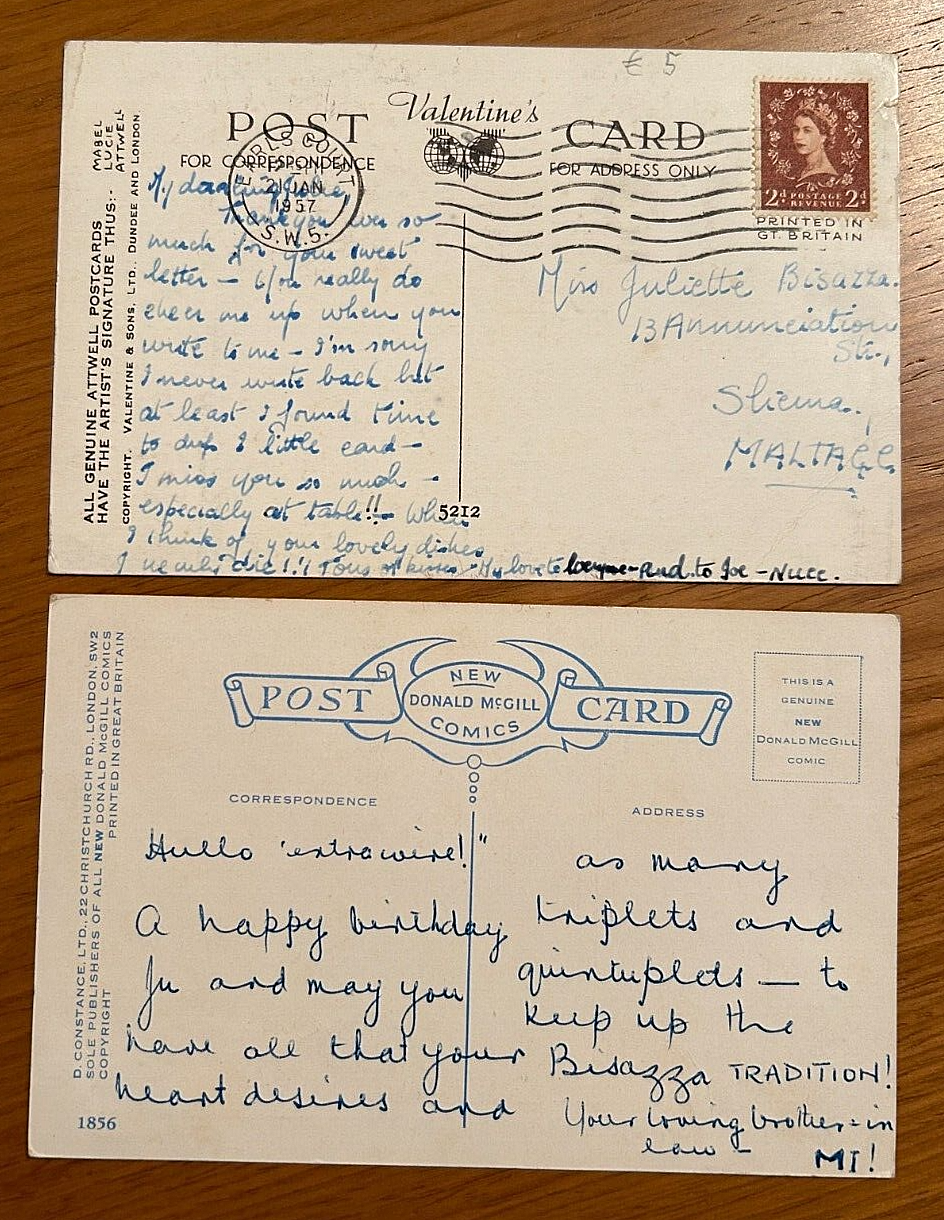 € 5
Valentine's
POST CARD
FOR CORRESPONDENCE
FOR ADDRESS ONLY
EARLS COURT
21 JAN
1957
S.W.5.
2d POSTAGE REVENUE 2d
PRINTED IN
GT. BRITAIN
ALL GENUINE ATTWELL POSTCARDS
HAVE THE ARTIST'S SIGNATURE THUS:-
MABEL
LUCIE
ATTWELL
COPYRIGHT. VALENTINE & SONS, LTD., DUNDEE AND LONDON.
My darling
Thank you ever so
much for your sweet
letter — You really do
cheer me up when you
write to me — I'm sorry
I never write back but
at least I found time
to drop a little card —
I miss you so much —
especially at table!! — When
I think of your lovely dishes
I nearly die!! Tons of kisses My love to and to Joe —
5212
Miss Juliette Bisazza.
13 Annunciation
Str.,
Sliema.,
MALTA G.C.
POST CARD
NEW
DONALD McGILL
COMICS
THIS IS A
GENUINE
NEW
DONALD McGILL
COMIC
CORRESPONDENCE
ADDRESS
D. CONSTANCE, LTD., 22 CHRISTCHURCH RD., LONDON, SW2
SOLE PUBLISHERS OF ALL NEW DONALD McGILL COMICS
COPYRIGHT PRINTED IN GREAT BRITAIN
1856
Hullo 'extra wire!"
A happy birthday
Ju and may you
have all that your
heart desires and
as many
triplets and
quintuplets — to
keep up the
Bisazza TRADITION!
Your loving brother-in
law —
MI!